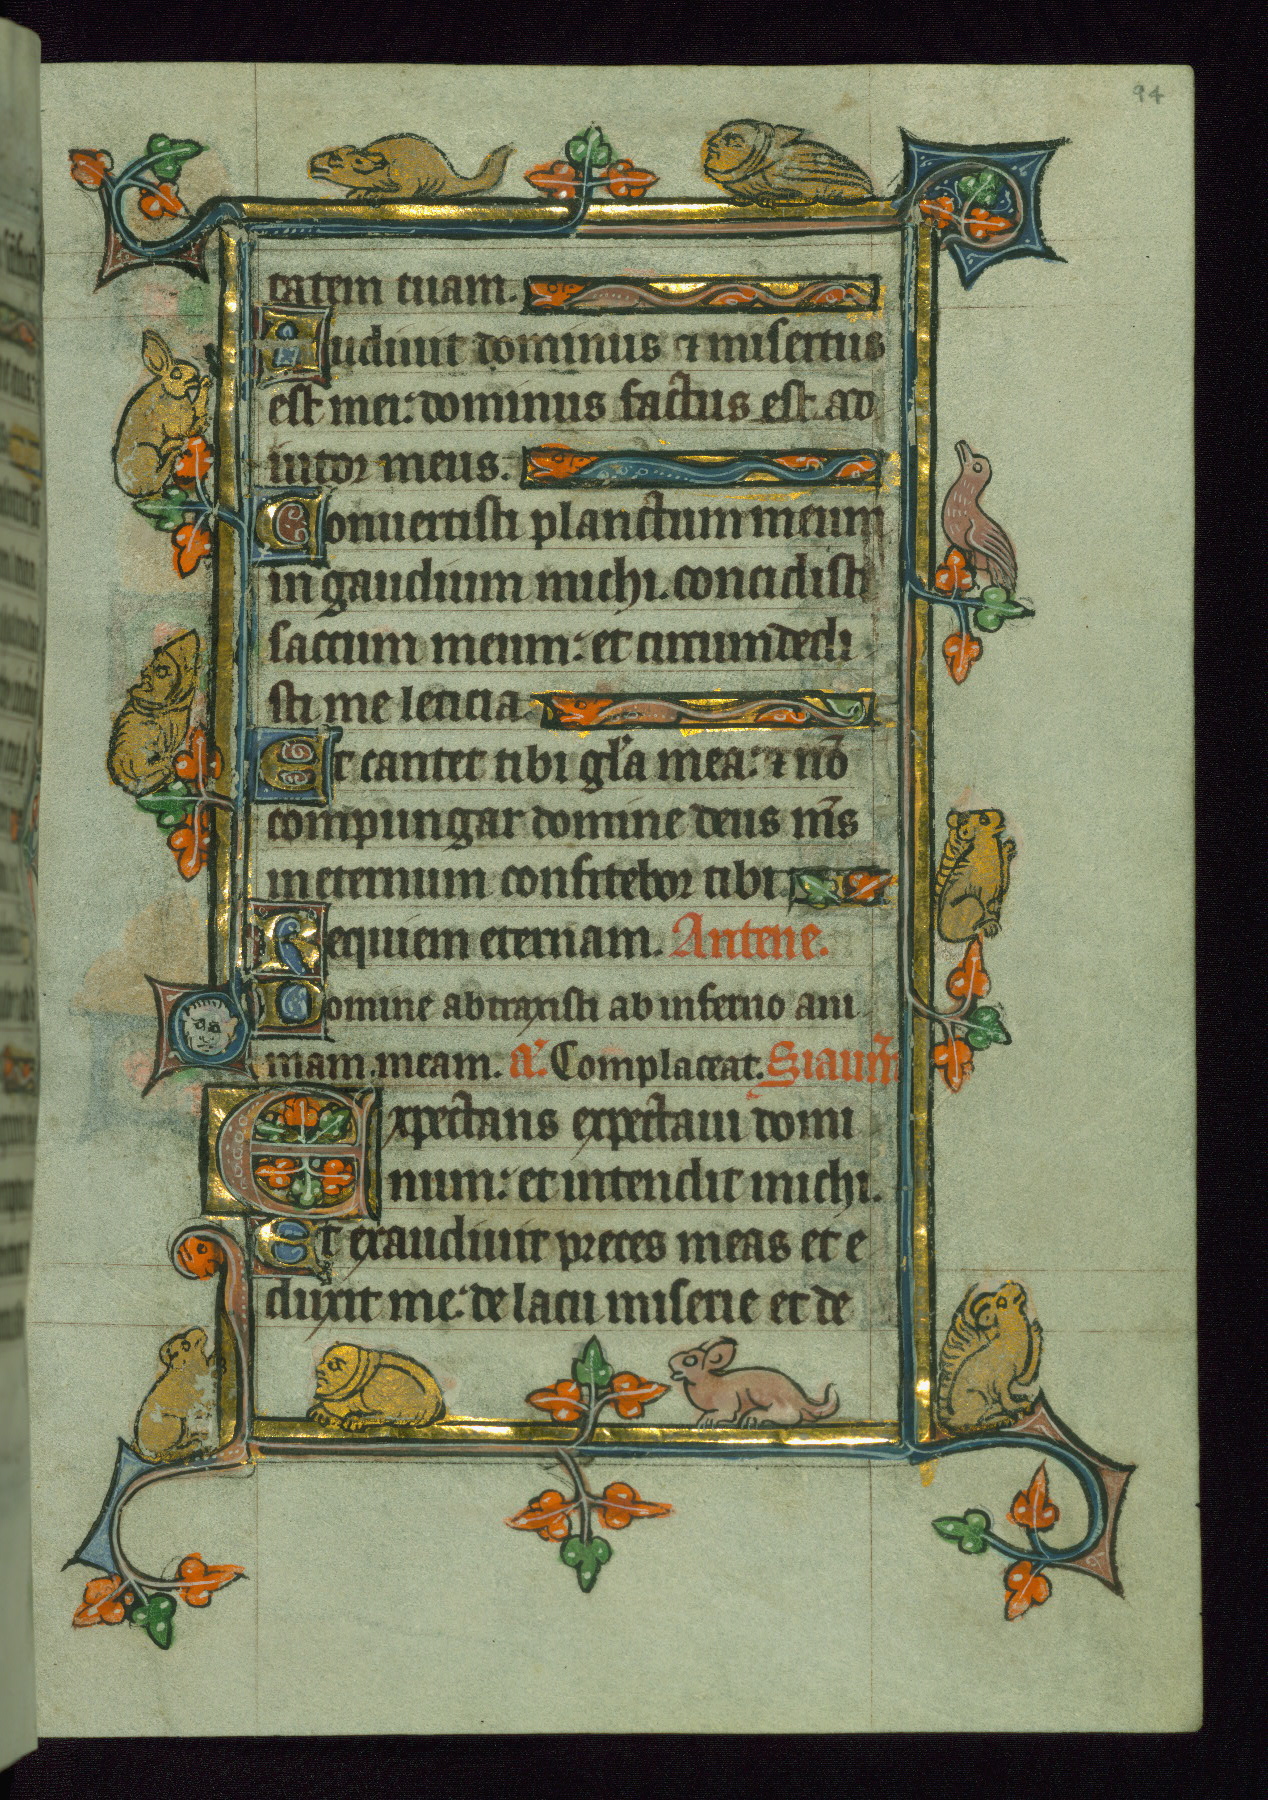 94
tatem tuam.
Audiuit dominus ⁊ misertus
est mei: dominus factus est ad
iutor meus.
Conuertisti planctum meum
in gaudium michi. concidisti
saccum meum: et circumdedi
sti me leticia
Et cantet tibi gl̃a mea: ⁊ nõ
compungar domine deus mẽs
in eternum confitebor tibi.
Requiem eternam. Antene.
Domine abtraxisti ab inferno ani
mam meam. a᷑. Complaceat.
Expectans expectaui domi
num: et intendit michi.
Et exaudiuit preces meas et e
duxit me: de lacu miserie et de